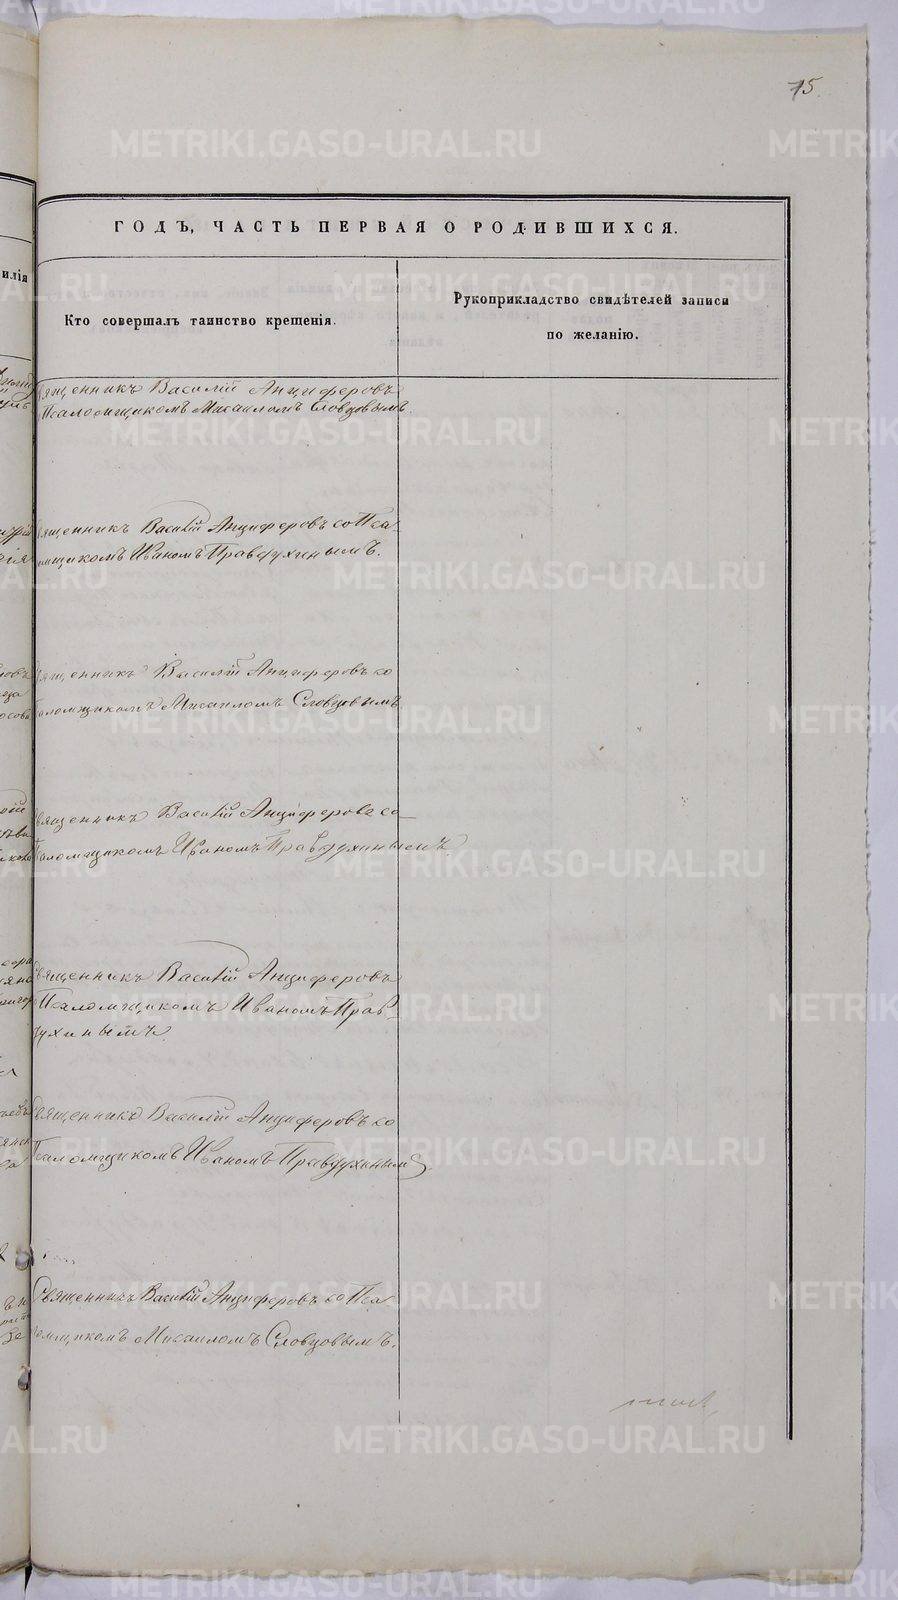 75.
ГОДЪ, ЧАСТЬ ПЕРВАЯ О РОДИВШИХСЯ.
илія
Кто совершалъ таинство крещенія.
Рукоприкладство свидѣтелей записи
по желанію.
вященникъ Василій Анциферовъ
Псаломщикомъ Мисаиломъ Словцовымъ.
вященникъ Василій Анциферовъ со Пса
мщикомъ Иваномъ Правдухинымъ.
вященникъ Василій Анциферовъ со
аломщикомъ Мисаиломъ Словцовымъ
вященникъ Василій Анциферовъ со
Псаломщикомъ Иваномъ Правдухинымъ
вященникъ Василій Анциферовъ
Псаломщикомъ Иваномъ Прав-
духинымъ.
вященникъ Василій Анциферовъ со
Псаломщикомъ Иваномъ Правдухинымъ.
Священникъ Василій Анциферовъ со Пса
омщикомъ Мисаиломъ Словцовымъ.
METRIKI.GASO-URAL.RU